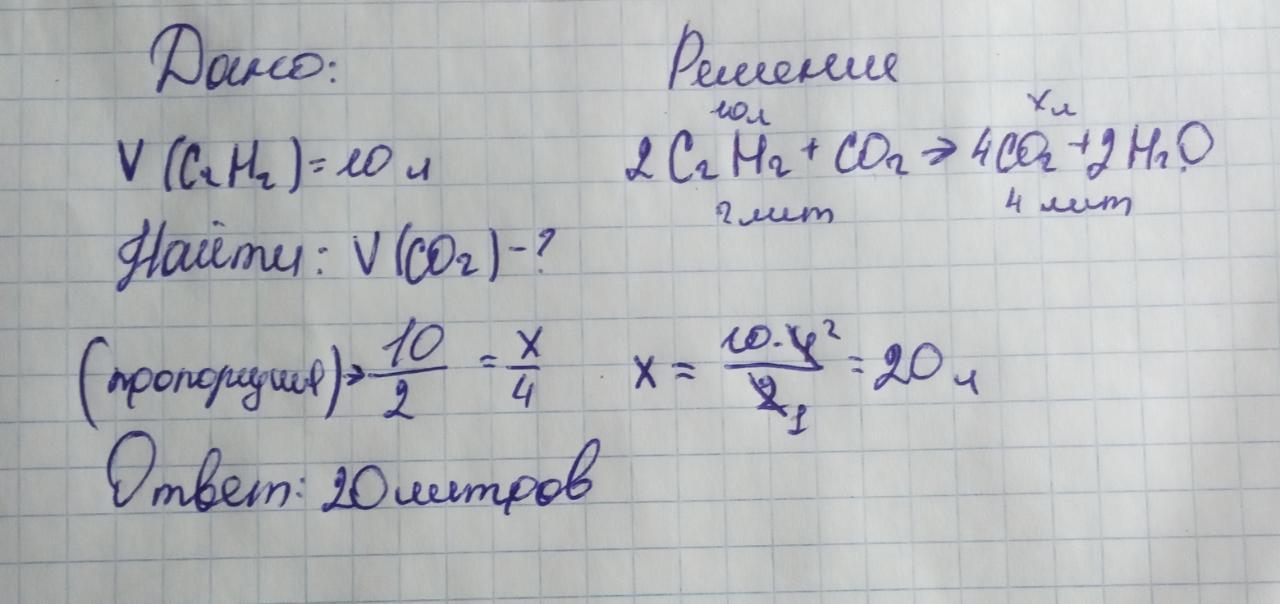 Дано:
V (C₂H₂) = 10 л
Найти: V (CO₂) - ?
Решение
10 л x л
2C₂H₂ + CO₂ → 4CO₂ + 2H₂O
2 лит 4 лит
(пропорция) → 10/2 = x/4 x = 10·4²/2₁ = 20 л
Ответ: 20 литров